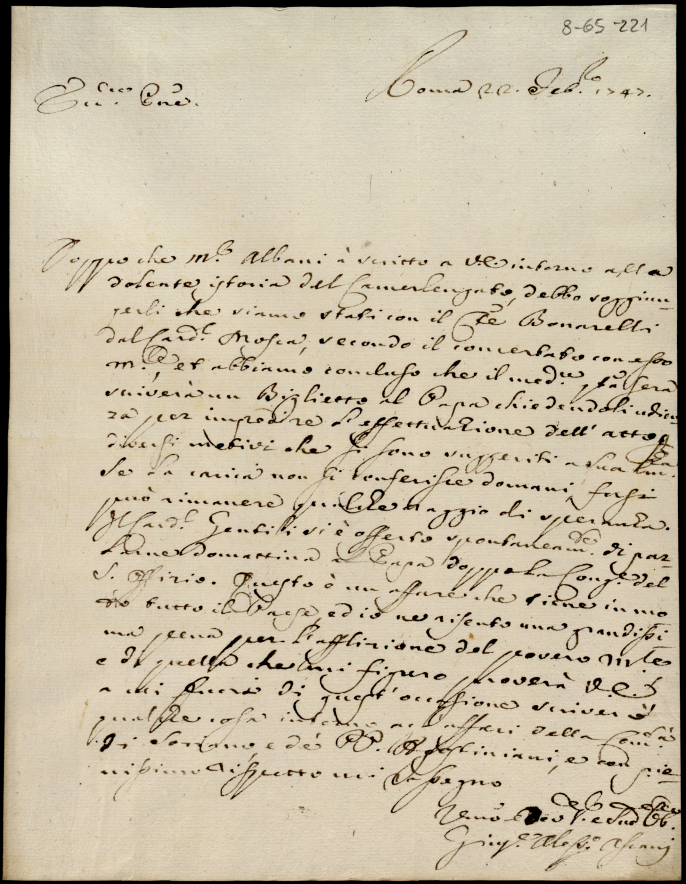 8-65-221
Roma 22. Feb.ro 1747.
Doppo che m.r Albani à scritto a V.E. intorno alla
dolente istoria del Camerlengato, debbo soggiun-
gerli che siamo stati con il C.te Bonarelli
dal Card.l Mosca, secondo il concertato con esso
m.e, et abbiamo concluso che il med.mo sta sera
scriverà un Biglietto al Papa chiedendoli udien-
za per impedire l'effettuazione dell'atto
diversi motivi che si sono suggeriti a sua Em.za
Se la carica non si conferisce domani, forsi
può rimanere qualche raggio di speranza.
Il Card.l Gentili si è offerto spontaneam.te di par-
larne domattina a Papa doppo la Cong.e del
S. Offizio. Questo è un affare che tiene in mo
to tutto il Paese, ed io ne risento una grandissi
ma pena per l'afflizione del povero
e di quella che mi figuro proverà V.E.
a mi fuora di quest'occasione scriverò
qualche cosa intorno agl'affari della Com.tà
di Soriano, e de' PP. Agostiniani, e con pie-
nissimo rispetto mi rassegno